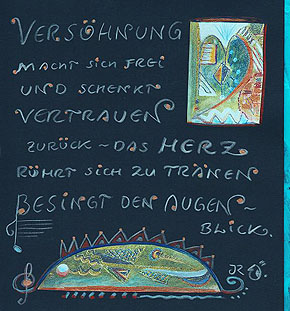 VERSÖHNUNG
MACHT SICH FREI
UND SCHENKT
VERTRAUEN
ZURÜCK ~ DAS HERZ
RÜHRT SICH ZU TRÄNEN
BESINGT DEN AUGEN~
BLICK.
JR